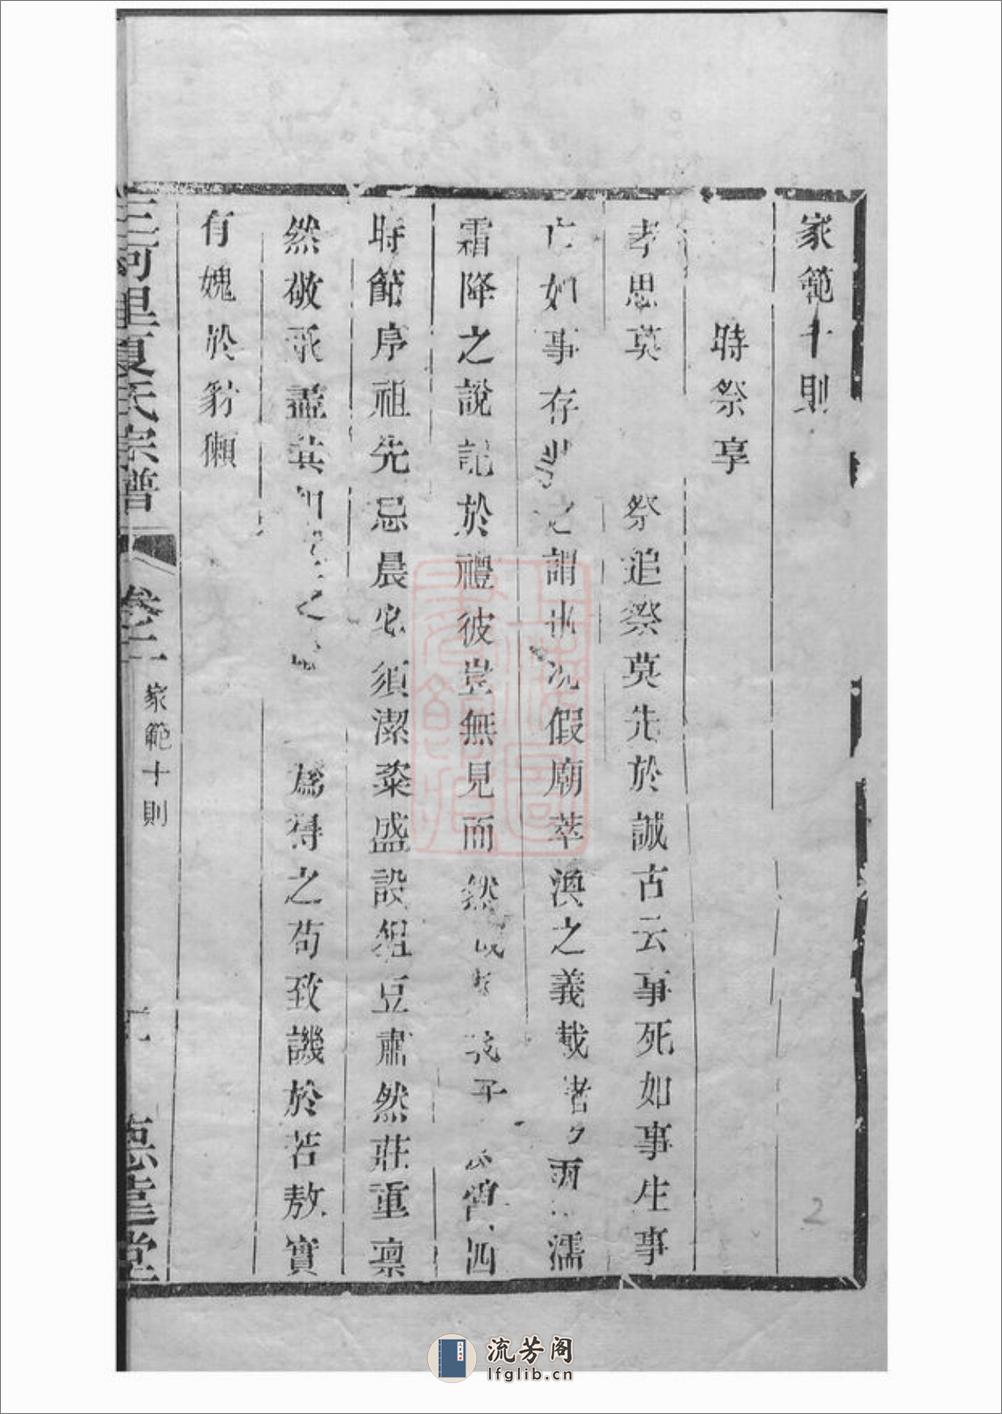 家範十則
時祭享
孝思莫 祭追祭莫先於誠古云事死如事生事
亡如事存 之謂 況假廟萃渙之義載 雨 濡
霜降之說記於禮彼豈無見而然 我子 四
時節序祖先忌晨必須潔粢盛設俎豆肅然莊重凛
然敬承盡其 之 為得之苟致譏於若敖實
有媿於豺獺
三河里夏氏宗譜
卷二
家範十則
堂
2
流芳阁
lfglib.cn